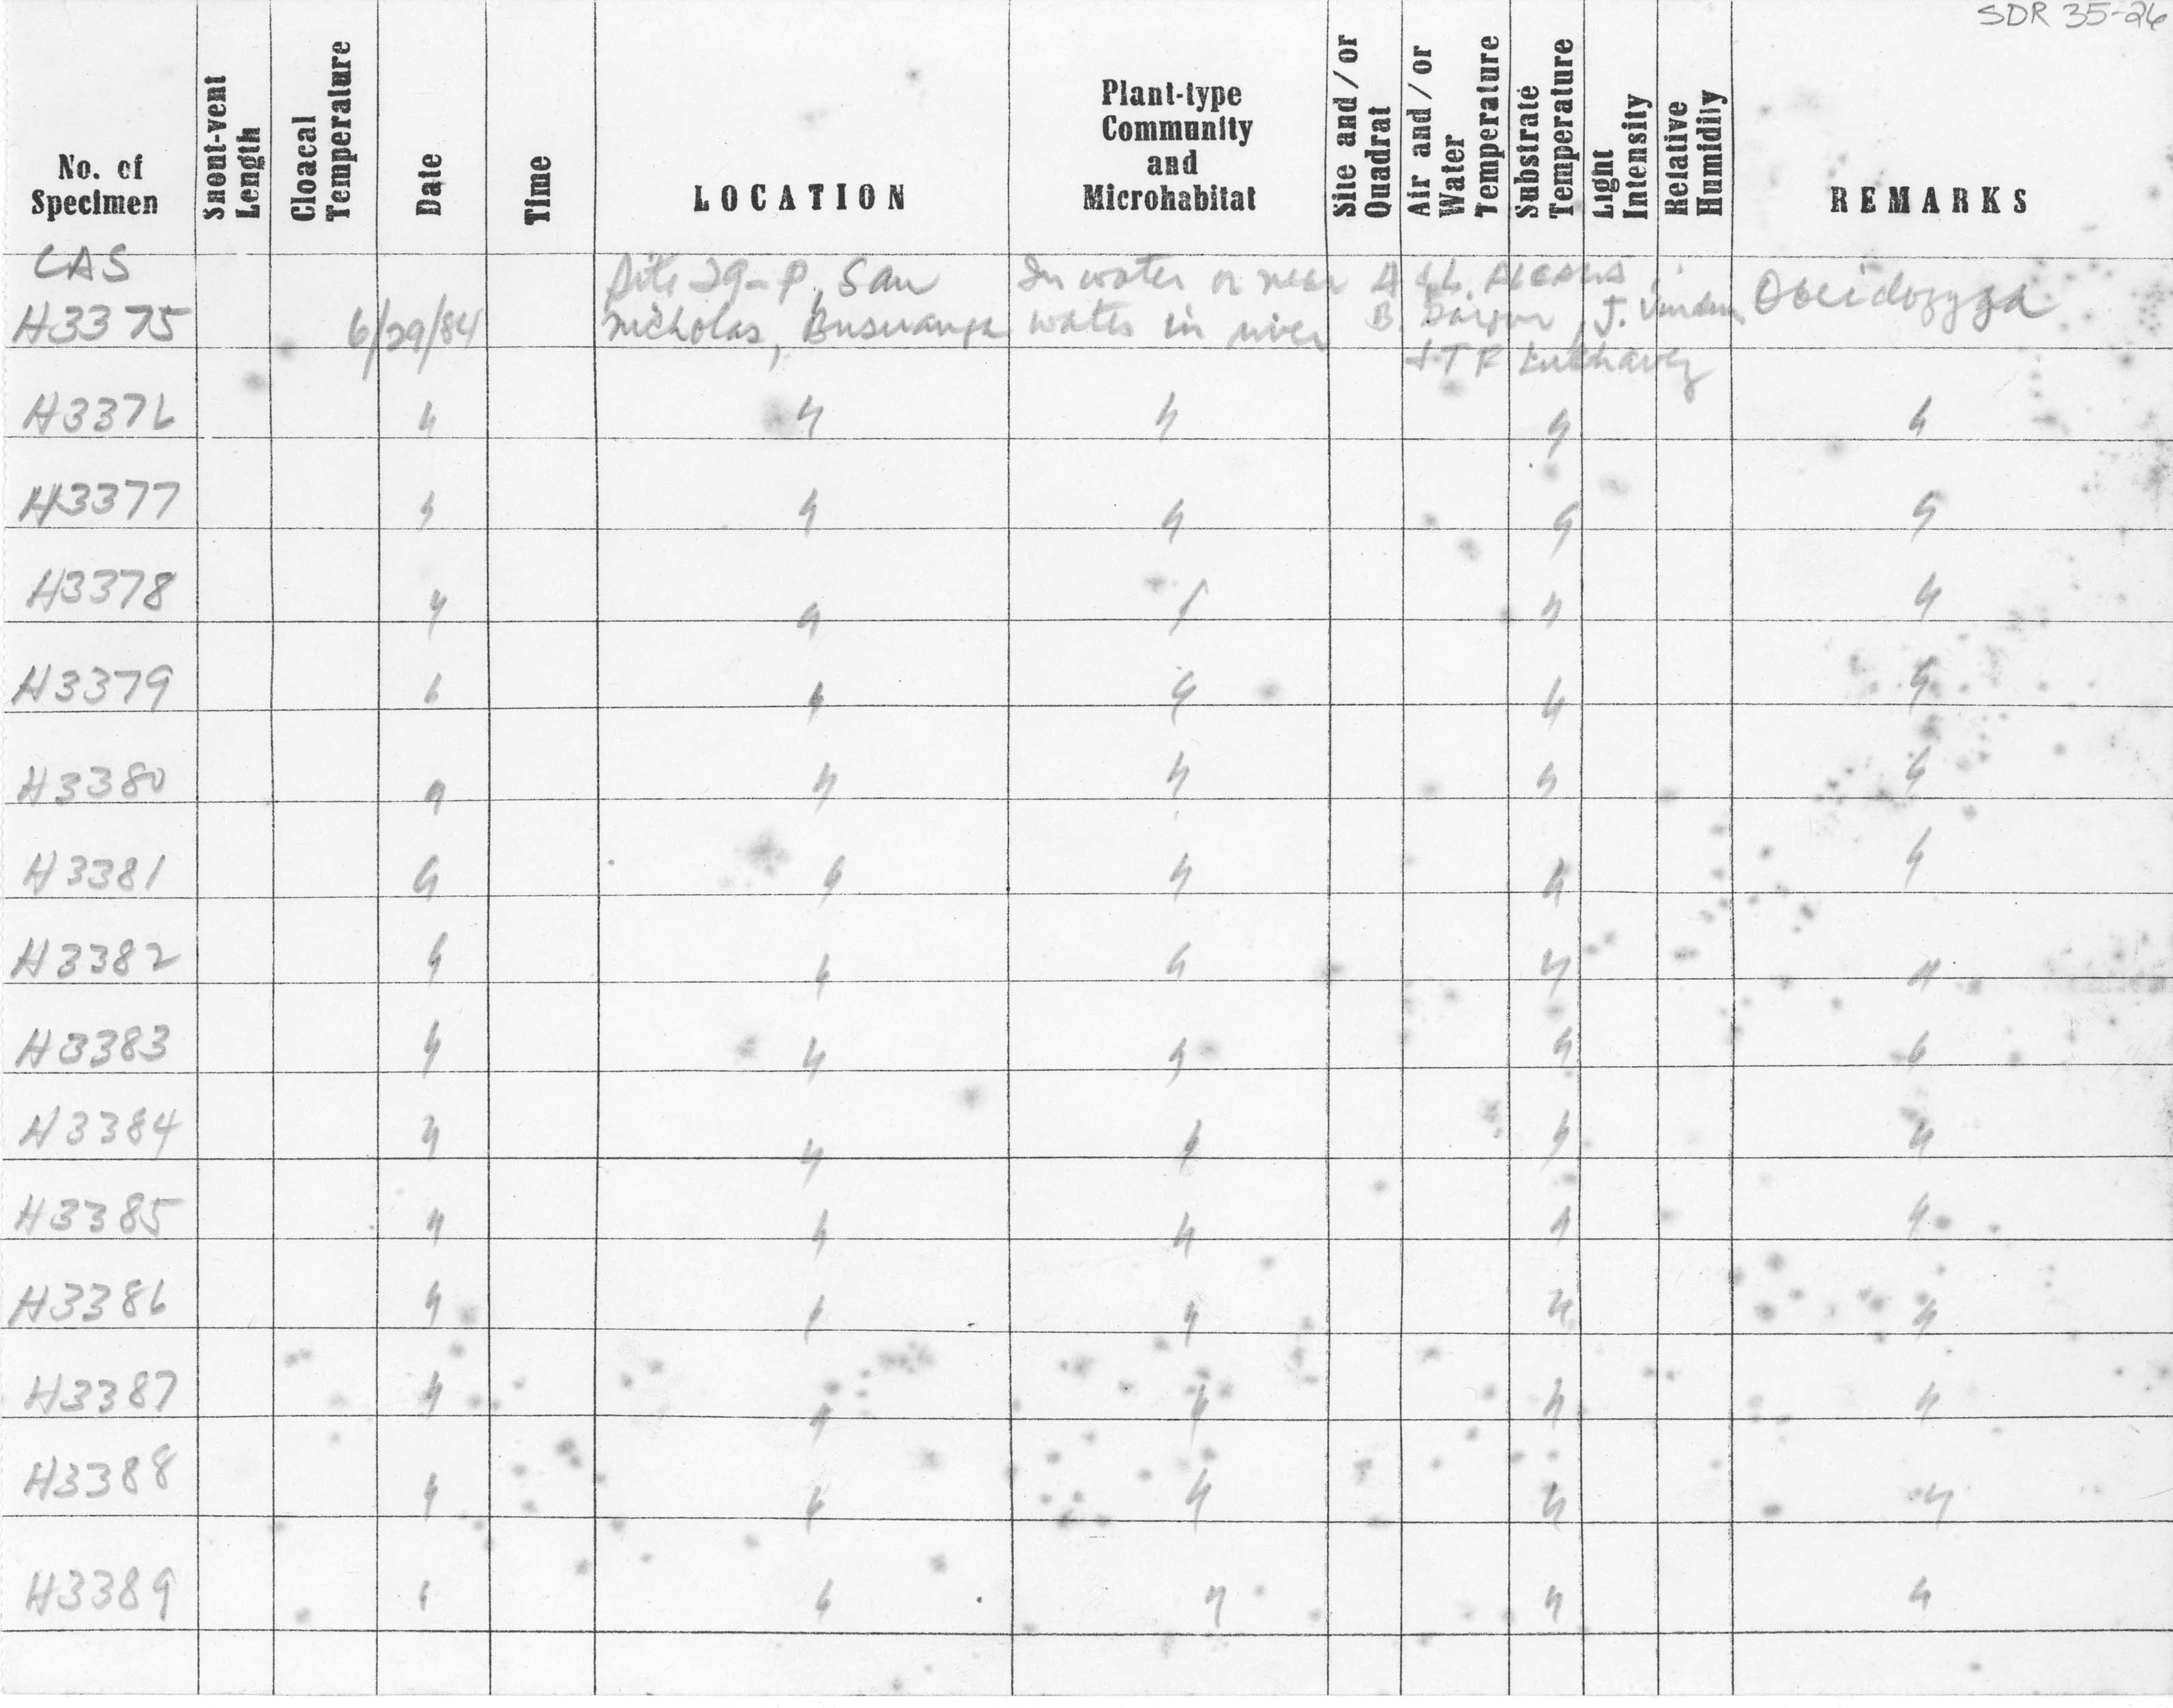 SDR 35-26
No. of Specimen
Snout-vent Length
Cloacal Temperature
Date
Time
LOCATION
Plant-type Community and Microhabitat
Site and/or Quadrat
Air and/or Water Temperature
Substrate Temperature
Light Intensity
Relative Humidity
REMARKS
CAS
H3375 6/29/84 Site 29-P, San Nicholas, Busuanga In water or near water in river A & L. Alcasid B. J. Vindum Ooeidozyga
H3376 " " " " "
H3377 " " " " "
H3378 " " " " "
H3379 " " " " "
H3380 " " " " "
H3381 " " " " "
H3382 " " " " "
H3383 " " " " "
H3384 " " " " "
H3385 " " " " "
H3386 " " " " "
H3387 " " " " "
H3388 " " " " "
H3389 " " " " "